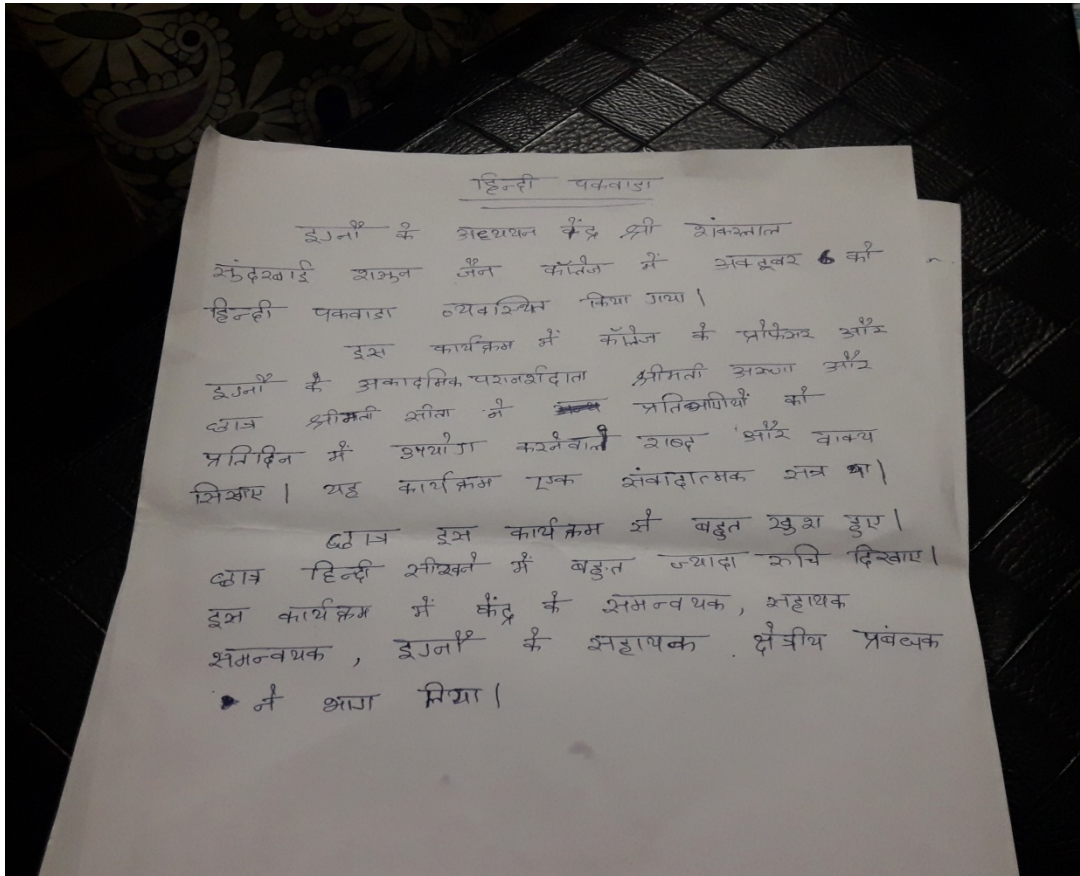 हिन्दी पकवाडा
इग्नौ के अध्ययन केंद्र श्री शंकरलाल
सुंदरबाई शासुन जैन कॉलेज में अक्टूबर 6 को
हिन्दी पकवाडा व्यवस्थित किया गया।
इस कार्यक्रम में कॉलेज के प्रोफेसर और
इग्नौ के अकादमिक परामर्शदाता श्रीमती अरुणा और
छात्र श्रीमती सीता ने प्रतिभागियों को
प्रतिदिन में उपयोग करनेवाले शब्द और वाक्य
सिखाए। यह कार्यक्रम एक संवादात्मक सत्र था।
छात्र इस कार्यक्रम से बहुत खुश हुए।
छात्र हिन्दी सीखने में बहुत ज्यादा रुचि दिखाए।
इस कार्यक्रम में केंद्र के समन्वयक, सहायक
समन्वयक, इग्नौ के सहायक क्षेत्रीय प्रबंधक
ने भाग लिया।